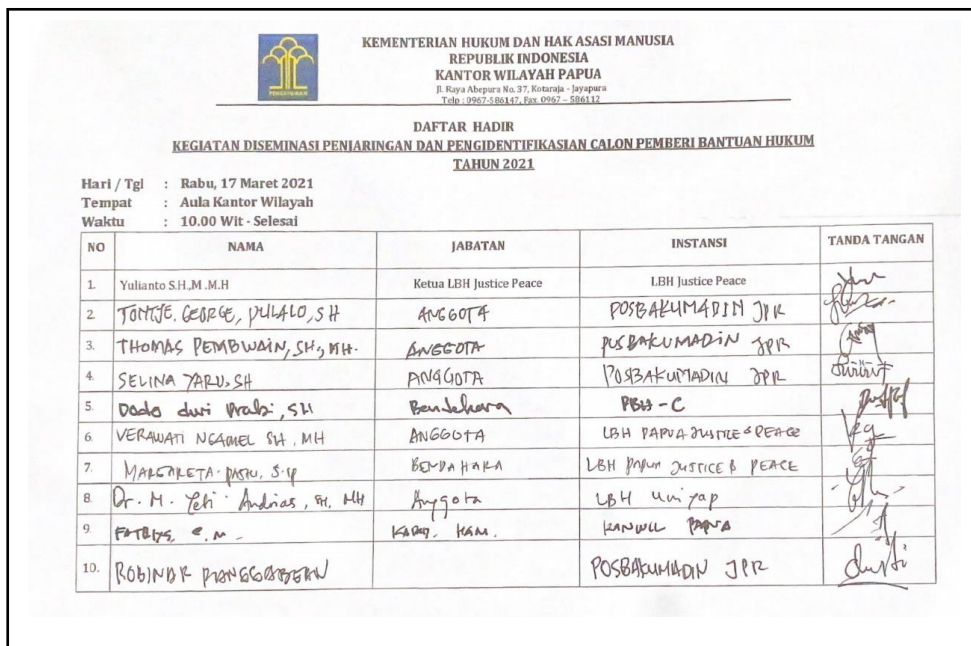 PENGAYOMAN
KEMENTERIAN HUKUM DAN HAK ASASI MANUSIA
REPUBLIK INDONESIA
KANTOR WILAYAH PAPUA
Jl. Raya Abepura No. 37, Kotaraja - Jayapura
Telp : 0967-586147, Fax. 0967 - 586112
DAFTAR HADIR
KEGIATAN DISEMINASI PENJARINGAN DAN PENGIDENTIFIKASIAN CALON PEMBERI BANTUAN HUKUM
TAHUN 2021
Hari / Tgl : Rabu, 17 Maret 2021
Tempat : Aula Kantor Wilayah
Waktu : 10.00 Wit - Selesai
NO NAMA JABATAN INSTANSI TANDA TANGAN
1. Yulianto S.H.,M.M.H Ketua LBH Justice Peace LBH Justice Peace
2. TONTJE. GEORGE, PULALO, SH ANGGOTA POSBAKUMADIN JPR
3. THOMAS PEMBWAIN, SH., MH. ANGGOTA POSBAKUMADIN JPR
4. SELINA YARU, SH ANGGOTA POSBAKUMADIN JPR
5. Dodo dwi SH Bendahara PBH - C
6. VERAWATI NGAMEL SH, MH ANGGOTA LBH PAPUA JUSTICE & PEACE
7. MARGARETA. BENDAHARA LBH PAPUA JUSTICE & PEACE
8. Dr. M. Yeti Andrias, SH, MH Anggota LBH Uniyap
9. HAM. KANWIL PAPUA
10. ROBINAR PANGGABEAN POSBAKUMADIN JPR